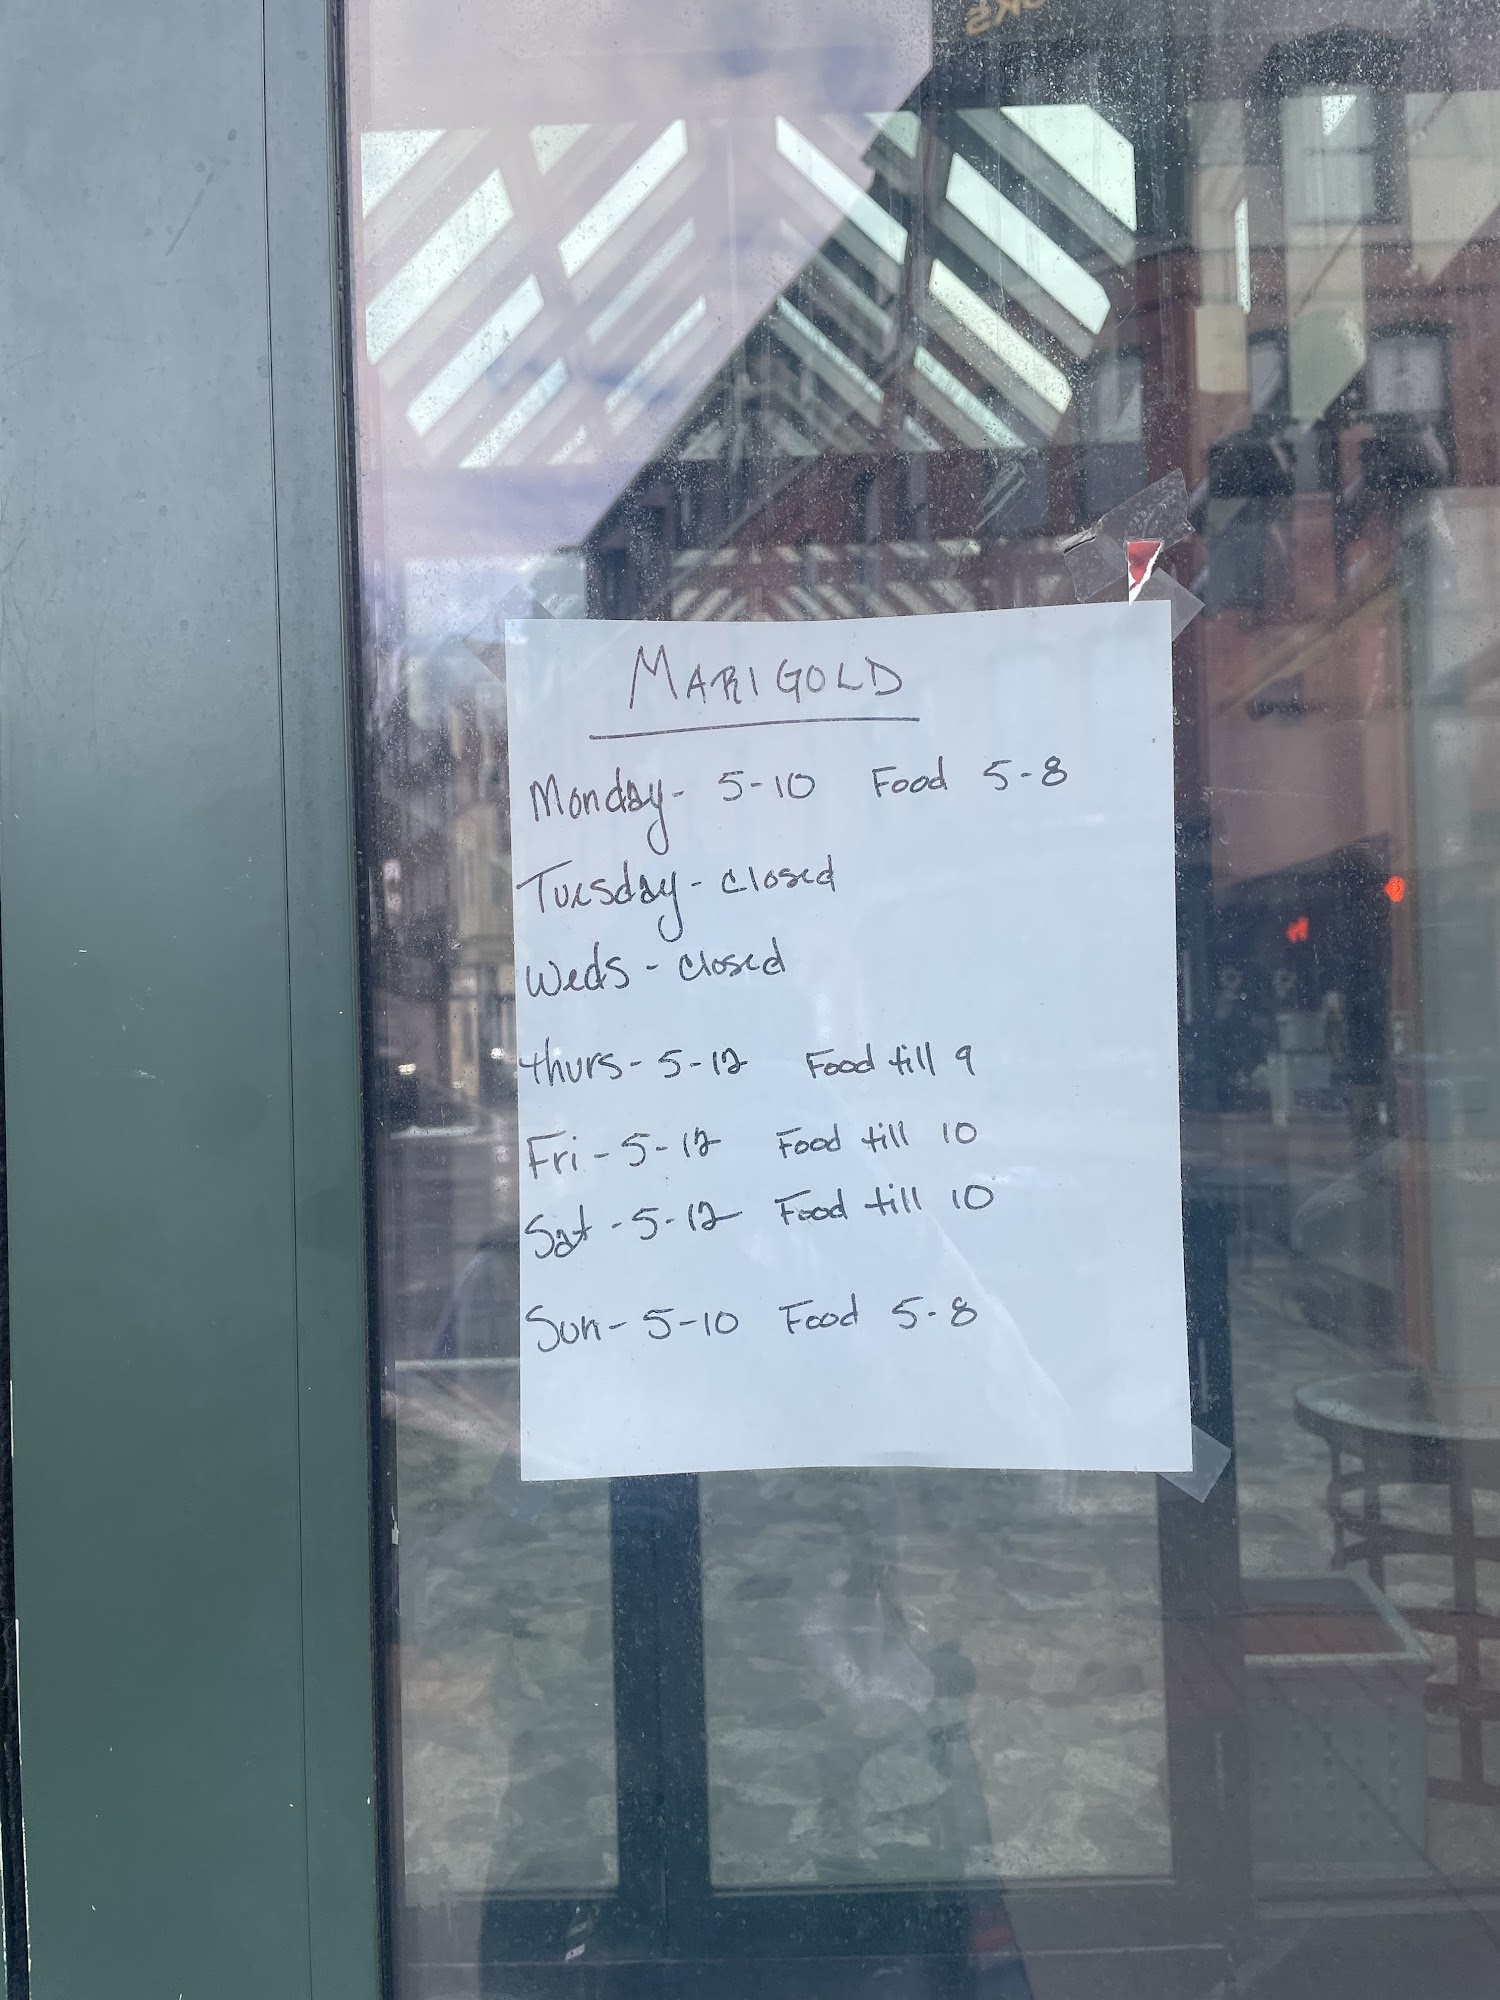 MARIGOLD
Monday - 5-10 Food 5-8
Tuesday - closed
Weds - closed
thurs - 5-12 Food till 9
Fri - 5-12 Food till 10
Sat - 5-12 Food till 10
Sun - 5-10 Food 5-8